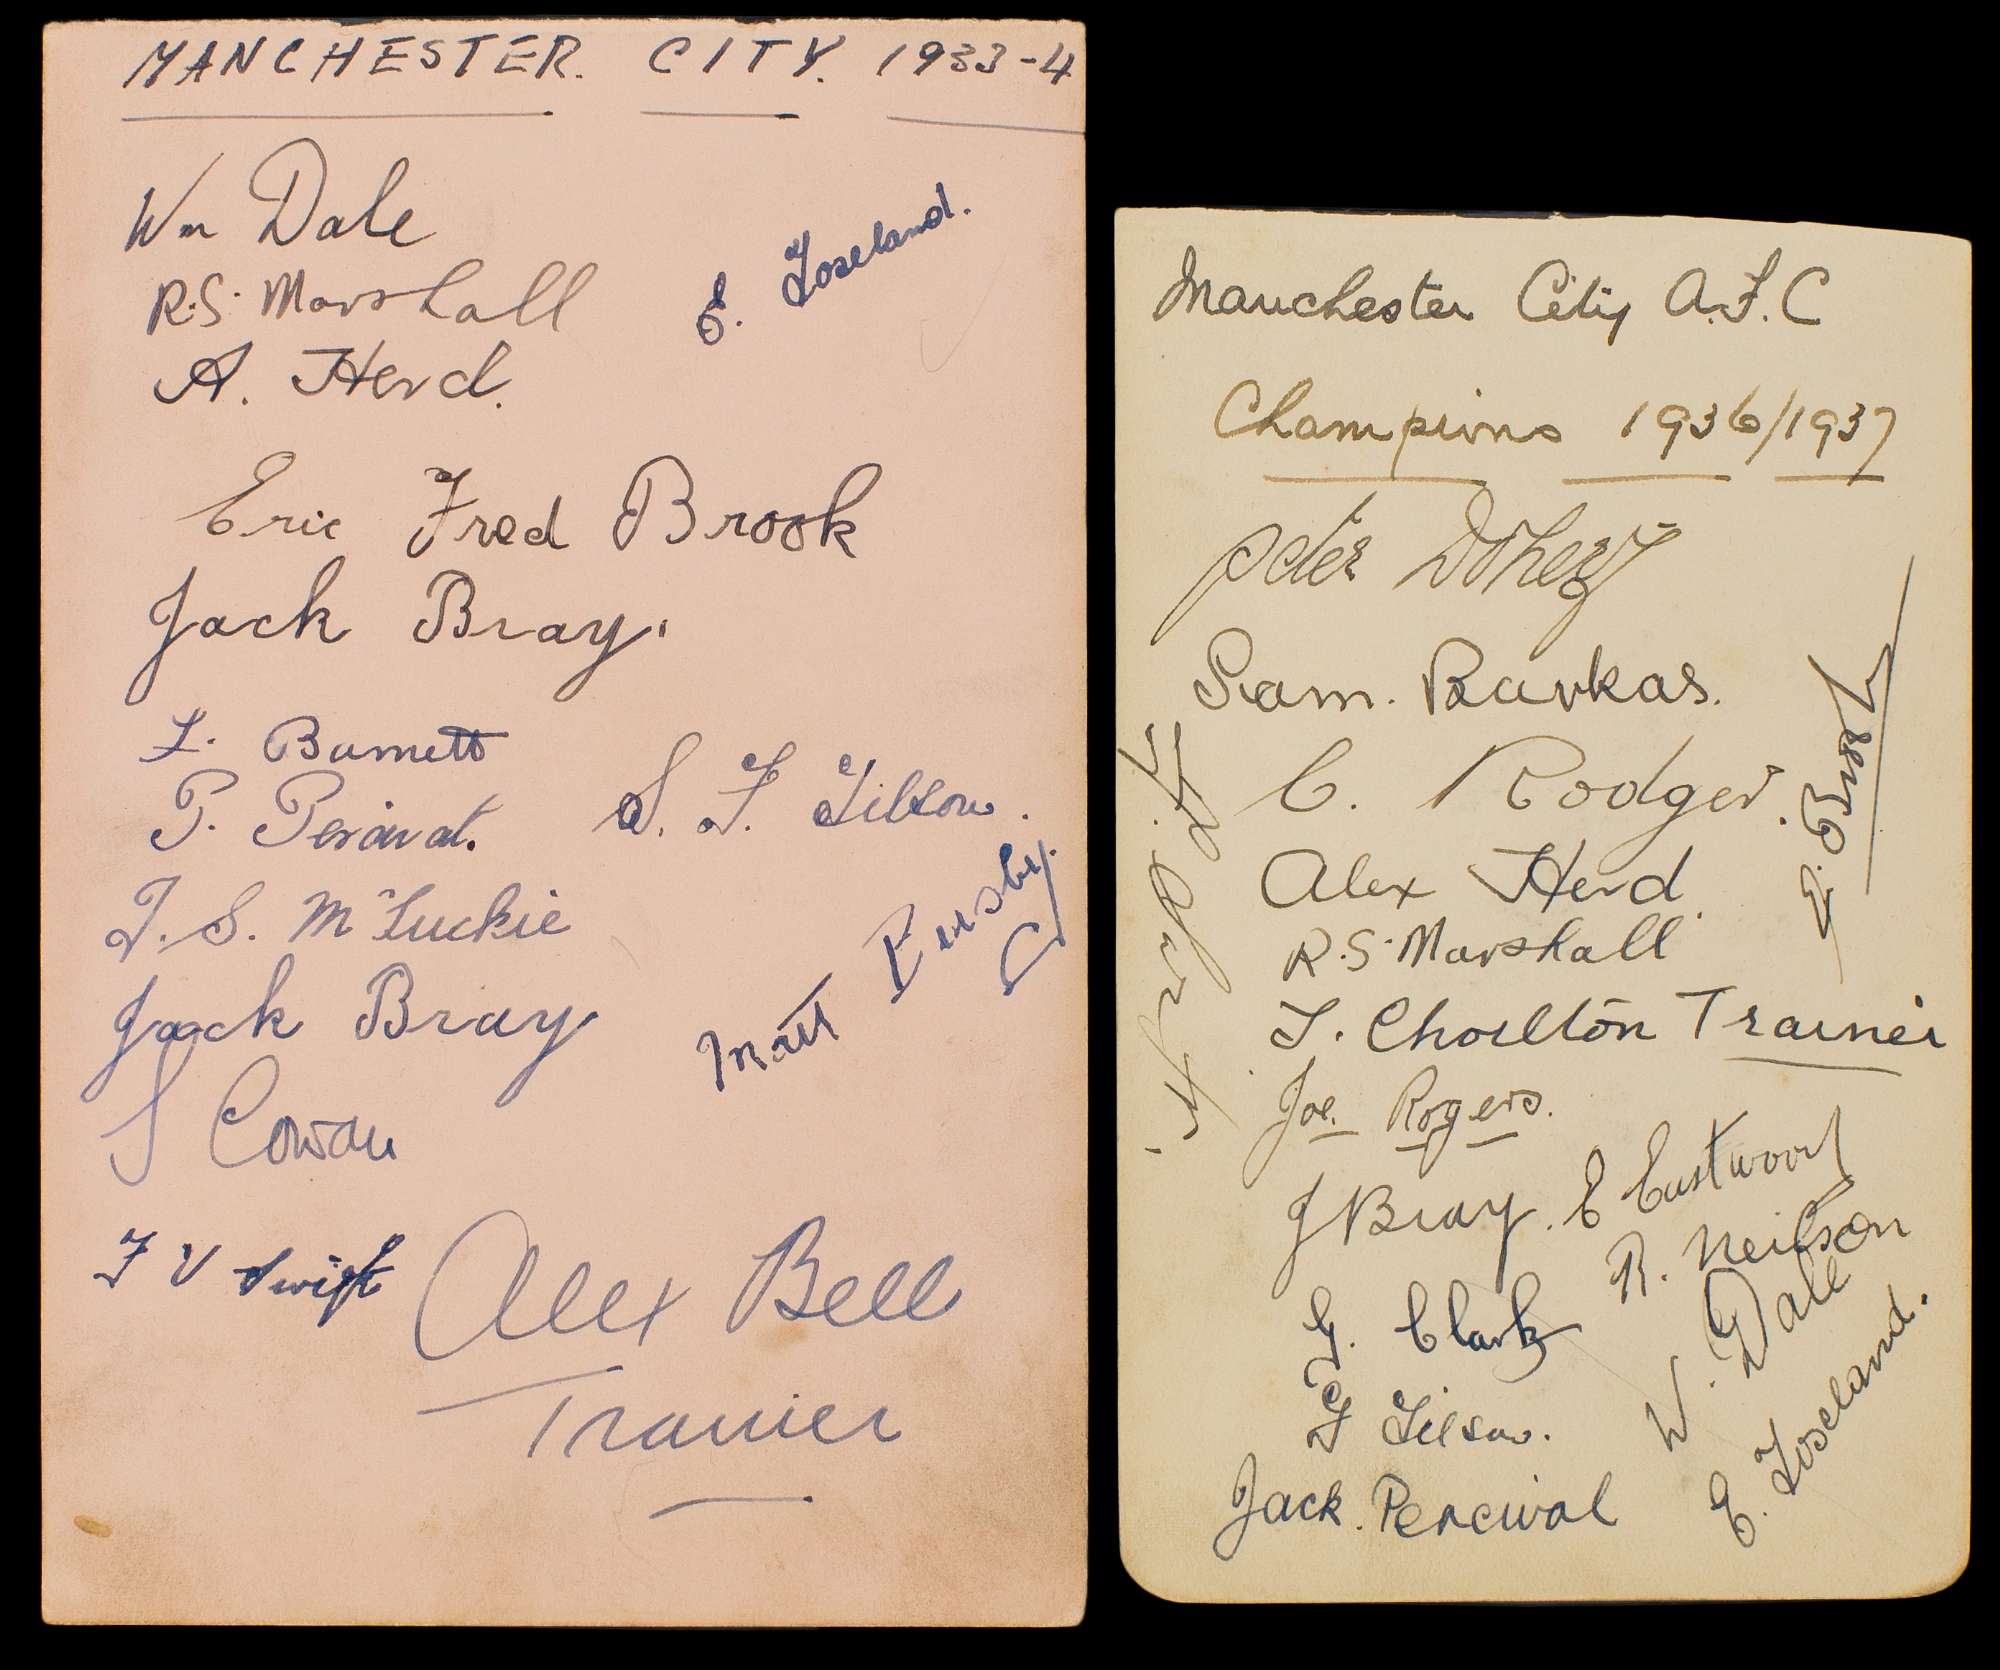 MANCHESTER. CITY. 1933-4
Wm Dale
E. Toseland.
R.S. Marshall
A. Herd.
Eric Fred Brook
Jack Bray.
L. Barnett
P. Percival.
S. F. Tilson.
J. S. McLuckie
Matt Busby
Jack Bray
S Cowan
F V Swift
Alex Bell
Trainer
Manchester City A.F.C
Champions 1936/1937
Peter Doherty
Sam. Barkas.
C. Rodger.
E. Brook
Alex Herd
R.S. Marshall
L. Chorlton Trainer
Joe. Rogers.
J Bray.
E Eastwood
R. Neilson
G. Clark
W. Dale
F Tilson.
E. Toseland.
Jack. Percival